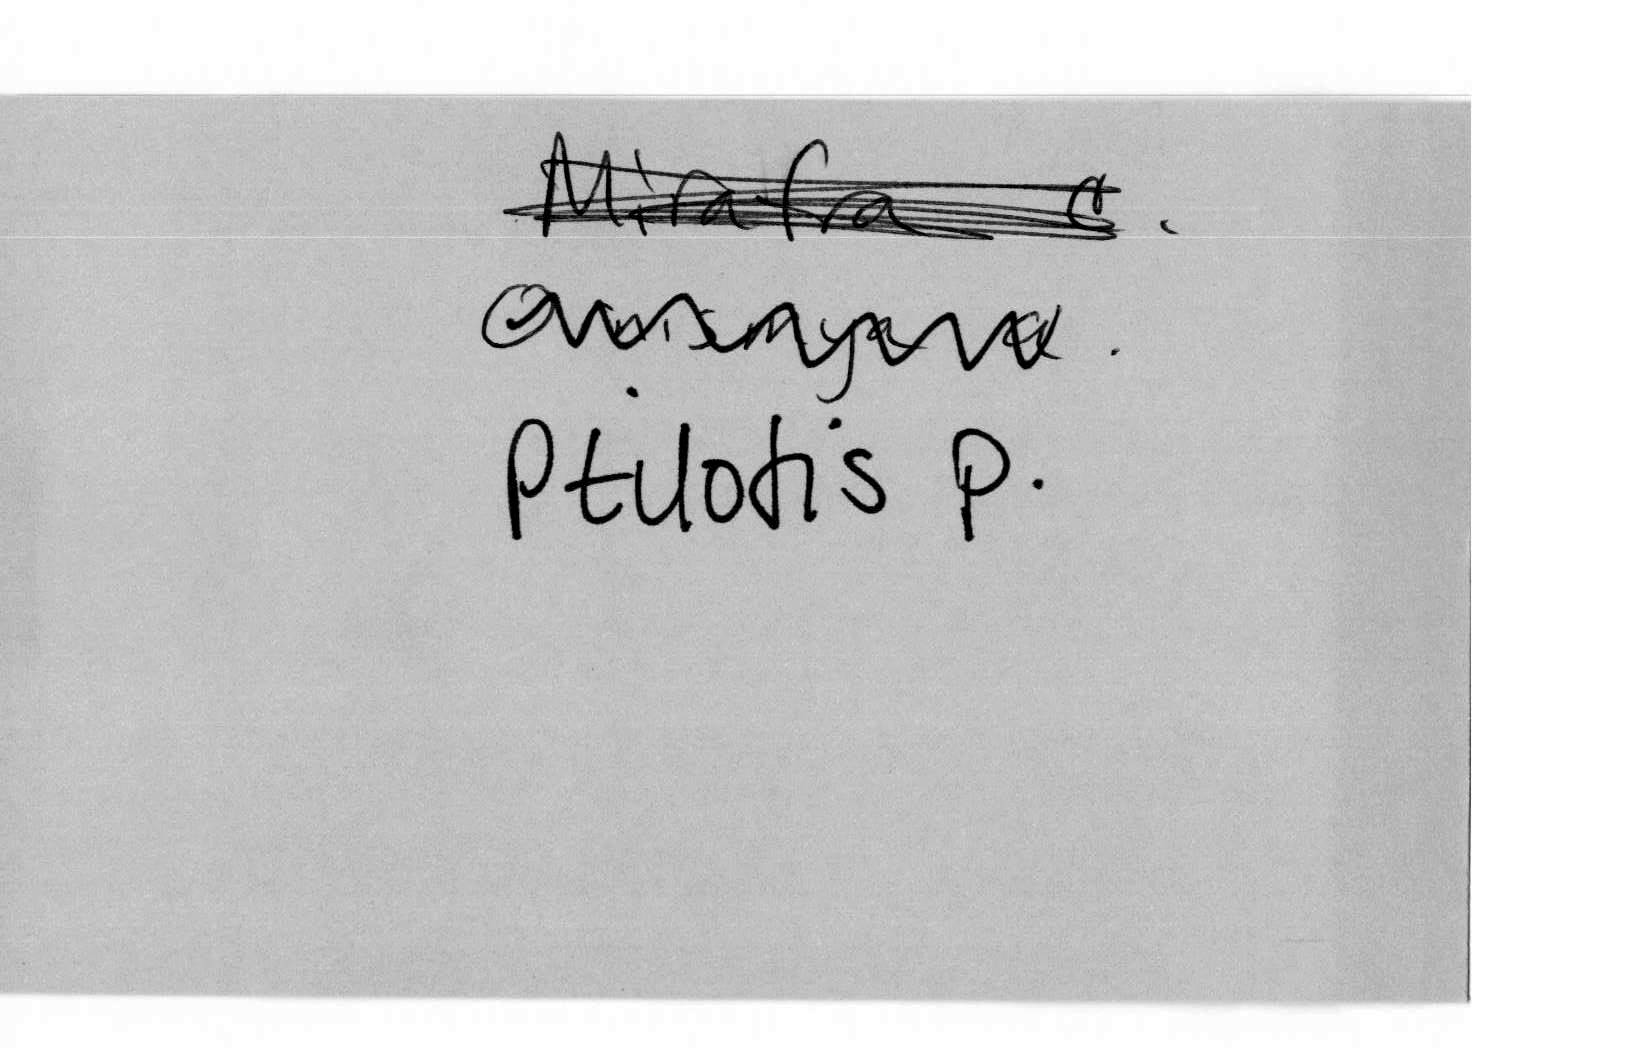 Mirafra C.
Ptilotis P.